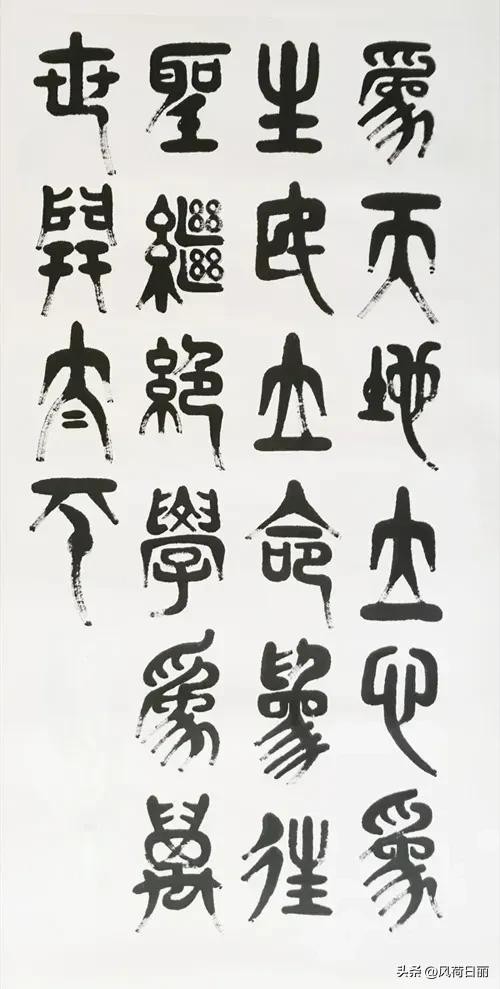 爲天地立心爲
生民立命爲往
聖繼絕學爲萬
世開太平
头条 @风荷日丽